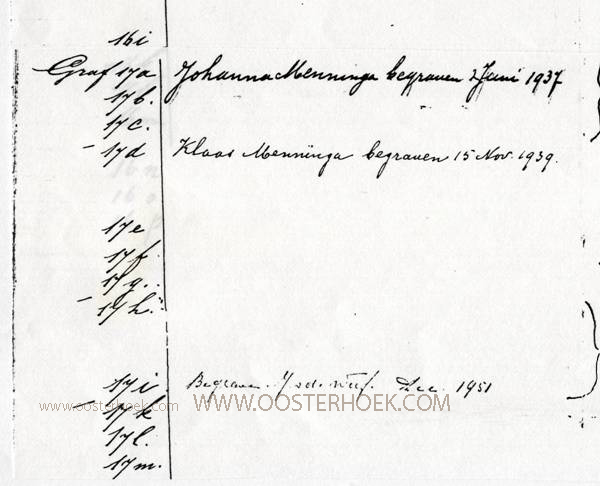 16i
Graf 17a Johanna Menninga begraven 2 Juni 1937
17b.
17c.
17d Klaas Menninga begraven 15 Nov. 1939.
17e
17f.
17g.
17h.
17i Begraven Dec. 1951
www.oosterhoek.com WWW.OOSTERHOEK.COM
17k
17l.
17m.